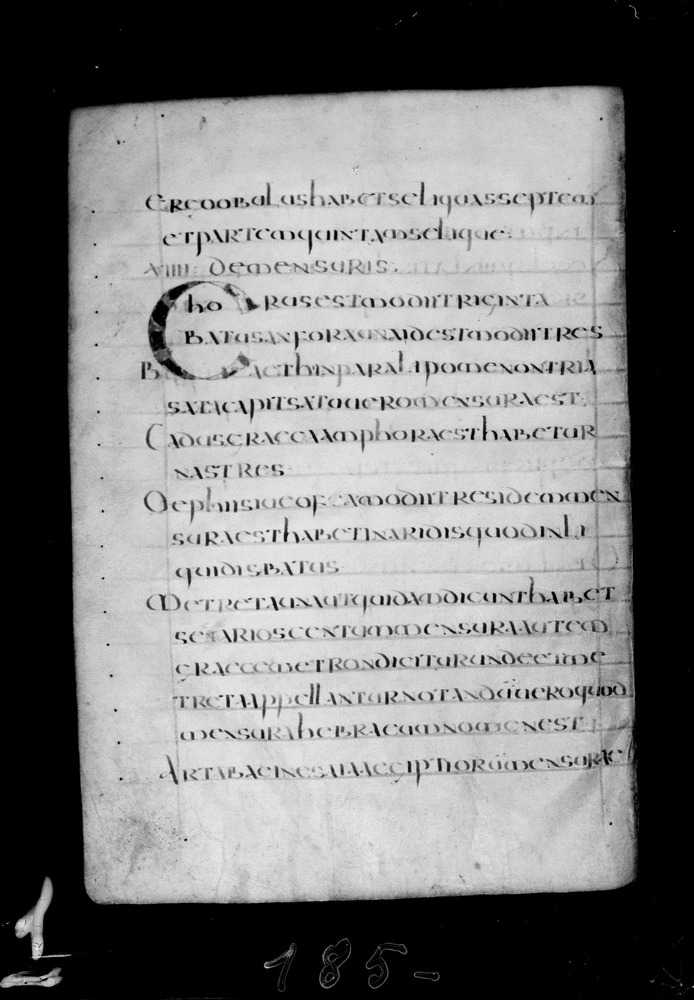 ergo obalus habet seliquas septem
et partem quintam selique.
XIIII: de mensuris.
Chorus est modii triginta
Batus anfora una id est modii tres
B et hin paralipomenon tria
sata capit satu uero mensura est
Cadus graeca amphora est habet ur
nas tres
Oephi siue ofa modii tres idem men
sura est habet in aridis quod in li
quidis batus
Metreta una ut quidam dicunt habet
sextarios centum mensura autem
graece metron dicitur unde et me
treta appellantur notandū uero quod
mensura hebraeum nomen est
Artaba mensurae
185-
1